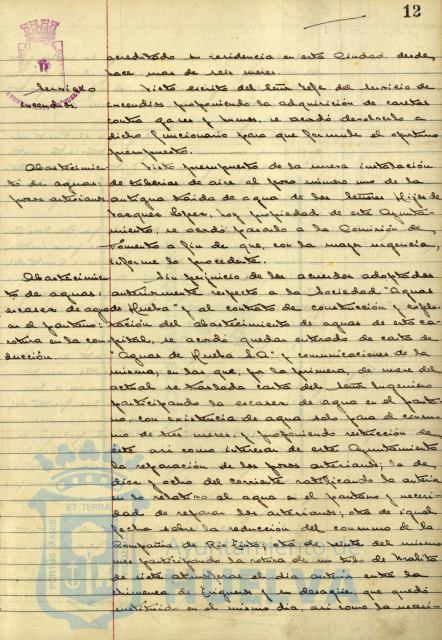 12
acreditado su residencia en esta Ciudad desde,
hace mas de seis meses.
Servicio
incendios.
Visto escrito del Señor Jefe del servicio de
incendios proponiendo la adquisición de caretas
contra gases y humos, se acordó devolverlo a
dicho funcionario para que formule el oportuno
presupuesto.
Abastecimien
to de aguas:
pozos artesianos.
Visto presupuesto de la nueva instalación
de tuberias de aire al pozo número uno de la
antigua traida de agua de los Señores Hijos de
Vazquez Lopez, hoy propiedad de este Ayunta-
miento, se acordó pasarlo a la Comisión de,
Fomento a fin de que, con la mayor urgencia,
informe lo procedente.
Abastecimien
to de aguas:
escasez de agua
en el pantano:
rotura en la con
ducción.
Sin perjuicio de los acuerdos adoptados
anteriormente respecto a la Sociedad "Aguas
de Huelva" y al contrato de construcción y explo-
tación del abastecimiento de aguas de esta ca-
pital, se acordó quedar enterado de carta de
"Aguas de Huelva S.A." y comunicaciones de la
misma, en las que, por la primera, de nueve del
actual se traslada carta del Señor Ingeniero
participando la escasez de agua en el panta-
no, con existencia de agua solo para el consu-
mo de tres meses, y proponiendo restricción de
éste asi como interesar de este Ayuntamiento
la reparación de los pozos artesianos; la de
diez y ocho del corriente ratificando la anterior
en lo relativo al agua en el pantano y necesi-
dad de reparar los artesianos; otra de igual
fecha sobre la reducción del consumo de la
Compañia de Rio Tinto; otra de veinte del mismo
mes participando la rotura de un tubo de
de siete atmosferas el dia anterior entre la
chimenea de y su desagüe, que quedó
sustituido en el mismo dia, asi como la necesi-
PORTUS MARIS
ET TERRAE
Ayuntamiento de
HUELVA